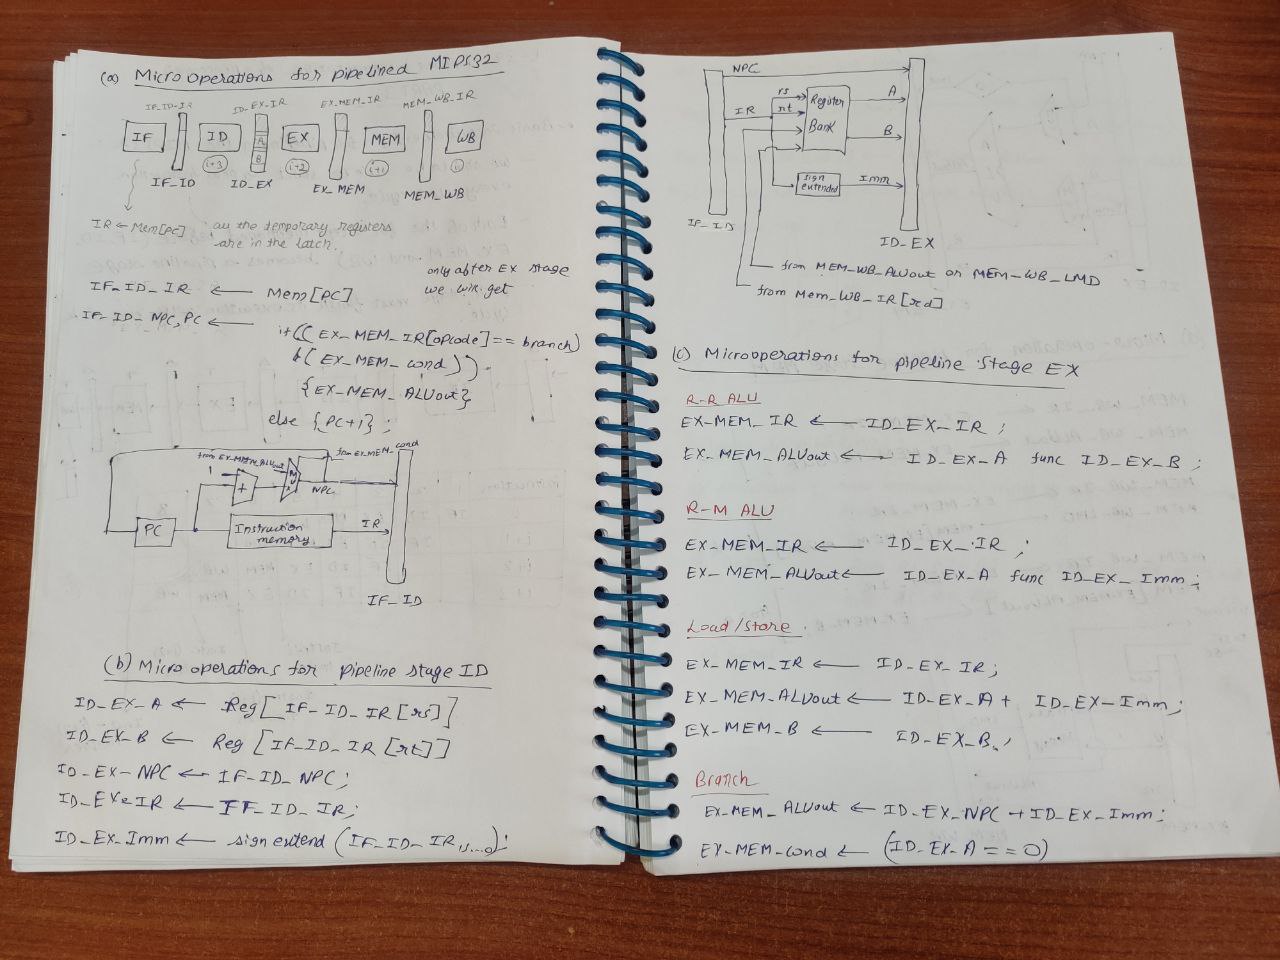 (a) Micro operations for pipelined MIPS32
IF_ID_IR ID_EX_IR EX_MEM_IR MEM_WB_IR
IF ID A B EX MEM WB
i+3 i+2 i+1 i
IF_ID ID_EX EX_MEM MEM_WB
IR ← Mem[PC] all the temporary registers
are in the latch.
only after EX stage
we will get
IF_ID_IR ← Mem[PC]
IF_ID_NPC, PC ← if((EX_MEM_IR[opcode]== branch)
&(EX_MEM_cond))
{EX_MEM_ALUout}
else {PC+1};
from EX_MEM_ALUout from EX_MEM_cond
1
+
MUX
NPC
PC
Instruction
memory
IR
IF_ID
(b) Micro operations for pipeline stage ID
ID_EX_A ← Reg[IF_ID_IR[rs]]
ID_EX_B ← Reg[IF_ID_IR[rt]]
ID_EX_NPC ← IF_ID_NPC;
ID_EX_IR ← IF_ID_IR;
ID_EX_Imm ← sign extend (IF_ID_IR15...0);
NPC
rs
IR
rt
Register
Bank
A
B
sign
extended
Imm
IF_ID
ID_EX
from MEM_WB_ALUout or MEM_WB_LMD
from Mem_WB_IR[rd]
(c) Microoperations for pipeline stage EX
R-R ALU
EX_MEM_IR ← ID_EX_IR;
EX_MEM_ALUout ← ID_EX_A func ID_EX_B;
R-M ALU
EX_MEM_IR ← ID_EX_IR;
EX_MEM_ALUout ← ID_EX_A func ID_EX_Imm;
Load/Store
EX_MEM_IR ← ID_EX_IR;
EX_MEM_ALUout ← ID_EX_A + ID_EX_Imm;
EX_MEM_B ← ID_EX_B;
Branch
EX_MEM_ALUout ← ID_EX_NPC + ID_EX_Imm;
EX_MEM_cond ← (ID_EX_A == 0)